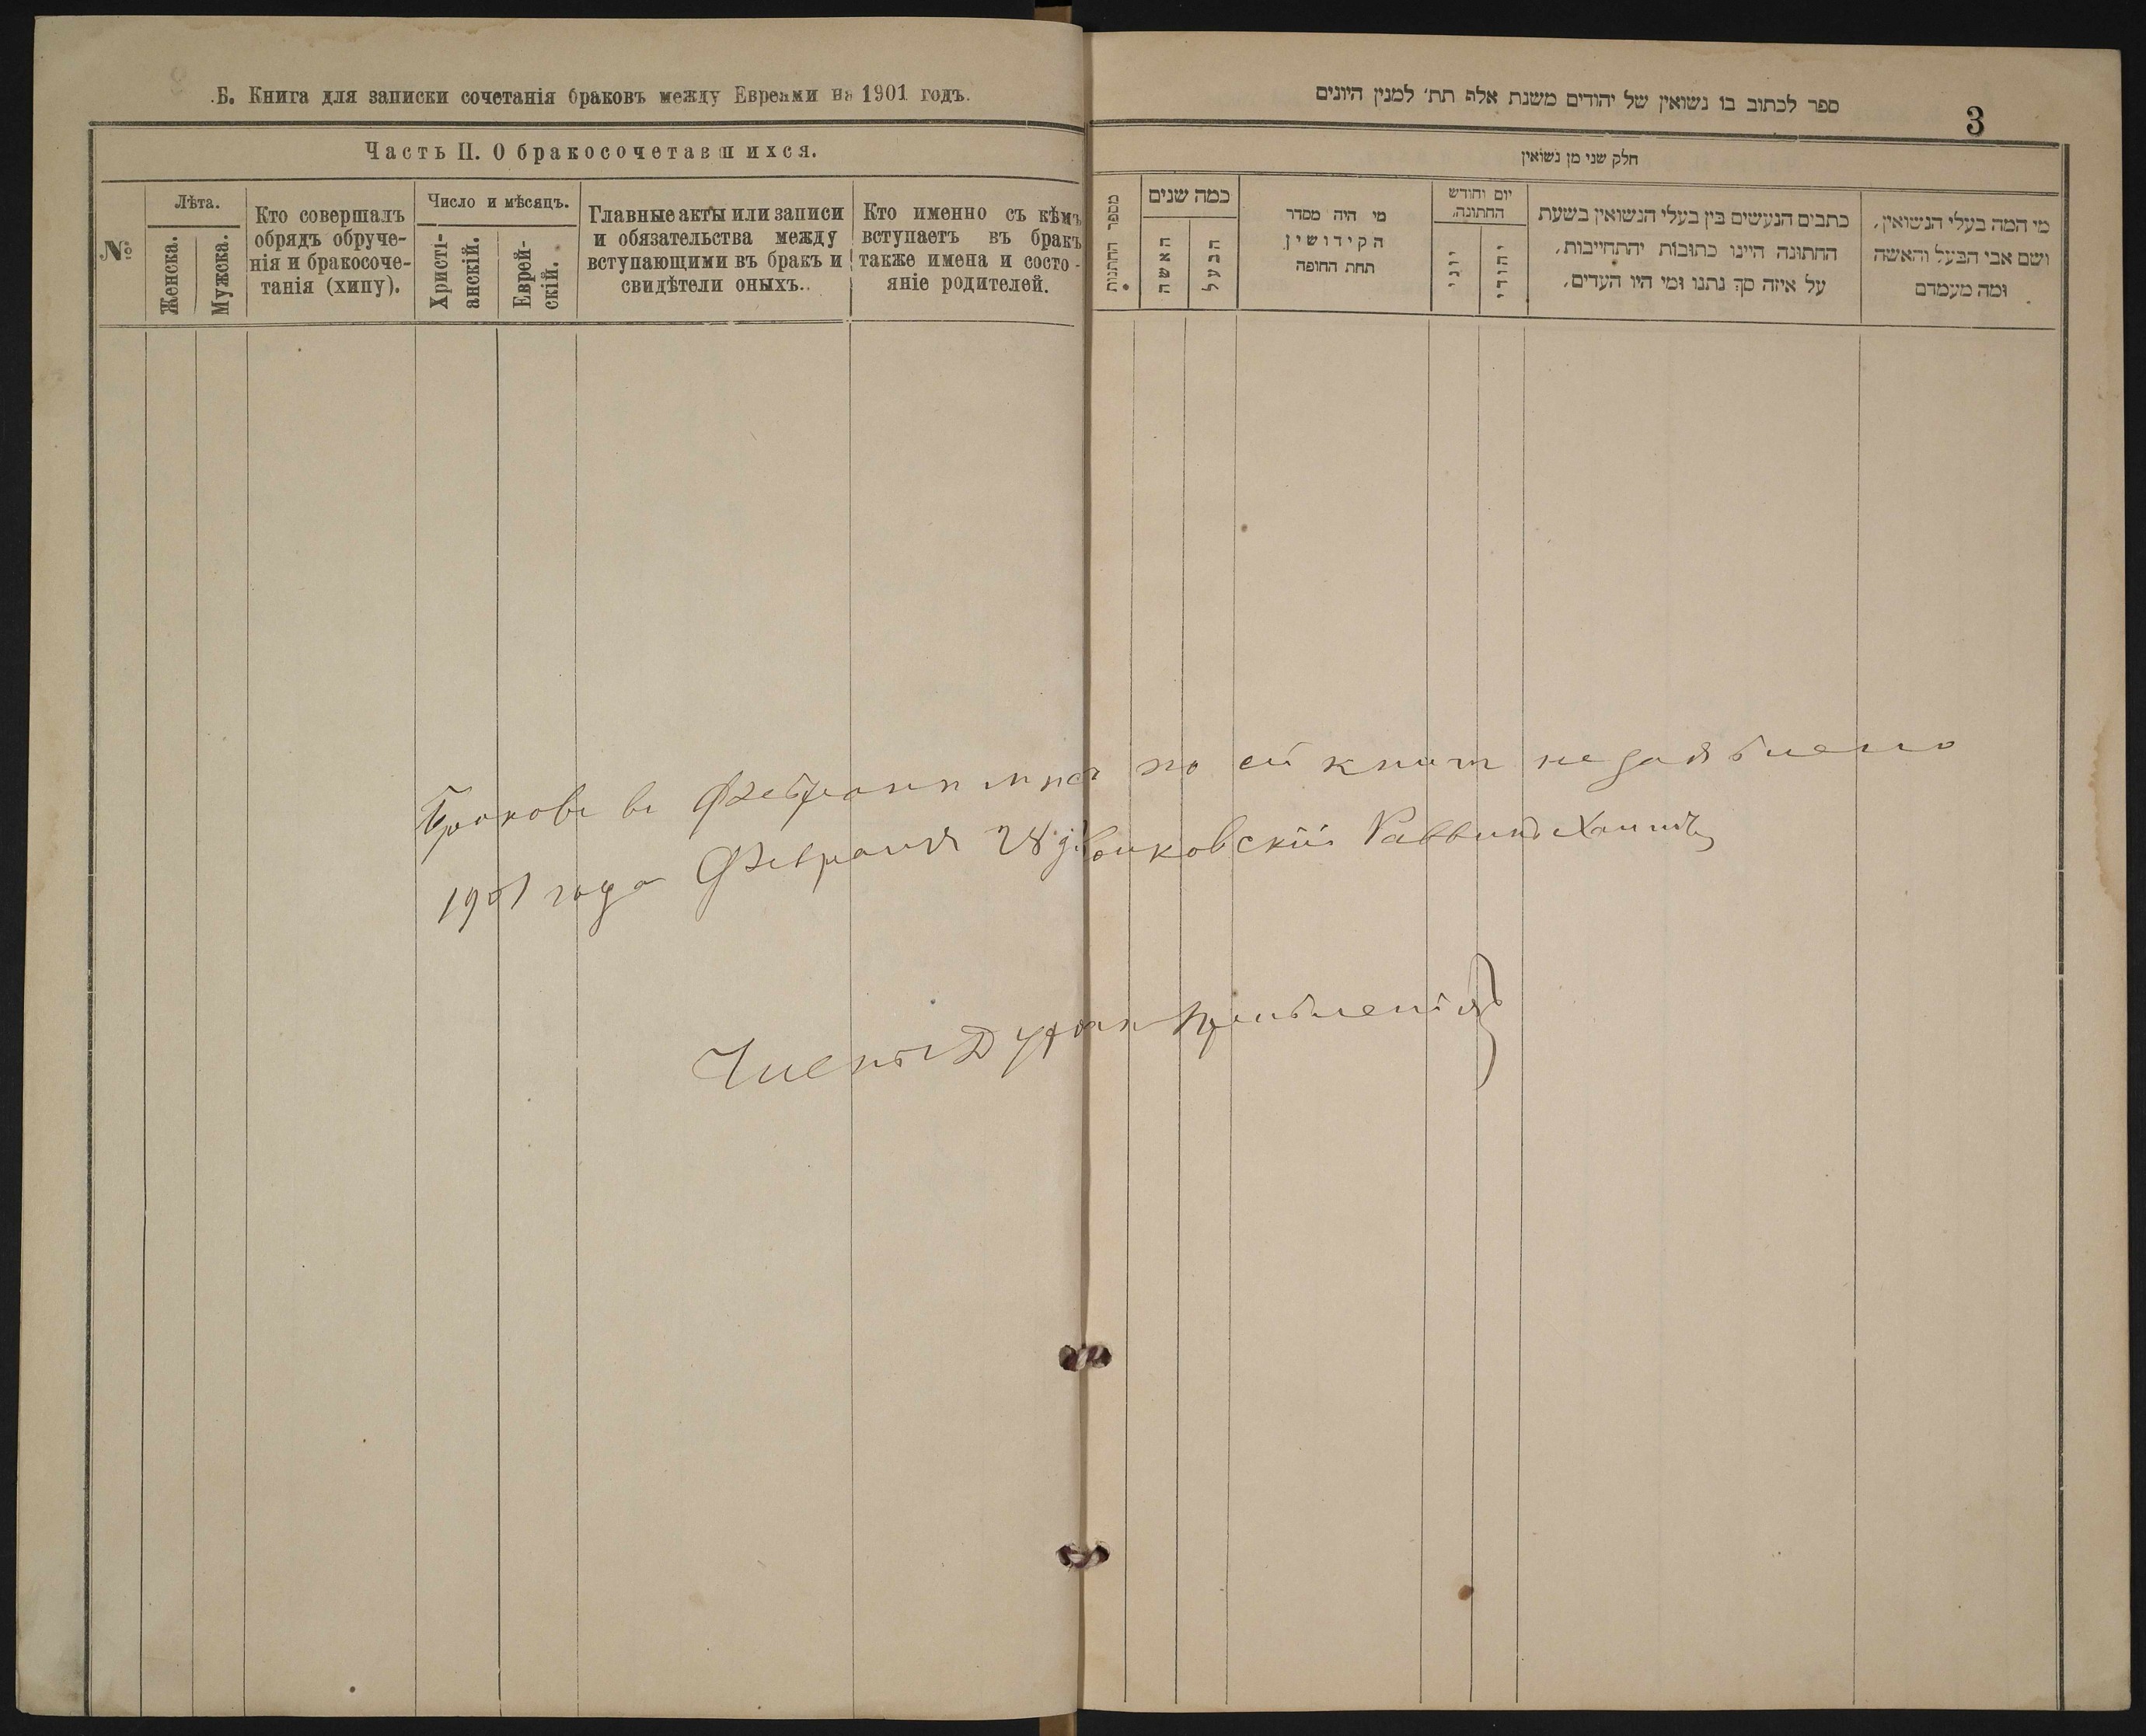 .Б. Книга для записки сочетанія браковъ между Евреями на 1901 годъ.
Часть II. О бракосочетавшихся.
№
Лѣта.
Женска.
Мужска.
Кто совершалъ
обрядъ обруче-
нія и бракосоче-
танія (хипу).
Число и мѣсяцъ.
Христі-
анскій.
Еврей-
скій.
Главные акты или записи
и обязательства между
вступающими въ бракъ и
свидѣтели оныхъ..
Кто именно съ кѣмъ
вступаетъ въ бракъ
также имена и состо-
яніе родителей.
ספר לכתוב בו נשואין של יהודים משנת אלף תת׳ למנין היונים
3
חלק שני מן נשואין
מי המה בעלי הנשואין,
ושם אבי הבעל והאשה
ומה מעמדם
כתבים הנעשים בין בעלי הנשואין בשעת
החתונה היינו כתובות יהתחייבות,
על איזה סך נתנו ומי היו העדים,
יום וחודש
החתונה,
יהודי
יוני
מי היה מסדר
הקידושין
תחת החופה
כמה שנים
הבעל
האשה
מספר
Браковъ въ Февралѣ м-цѣ по сей книгѣ не
1901 года Февраля 28 д. Раввинъ
Члены